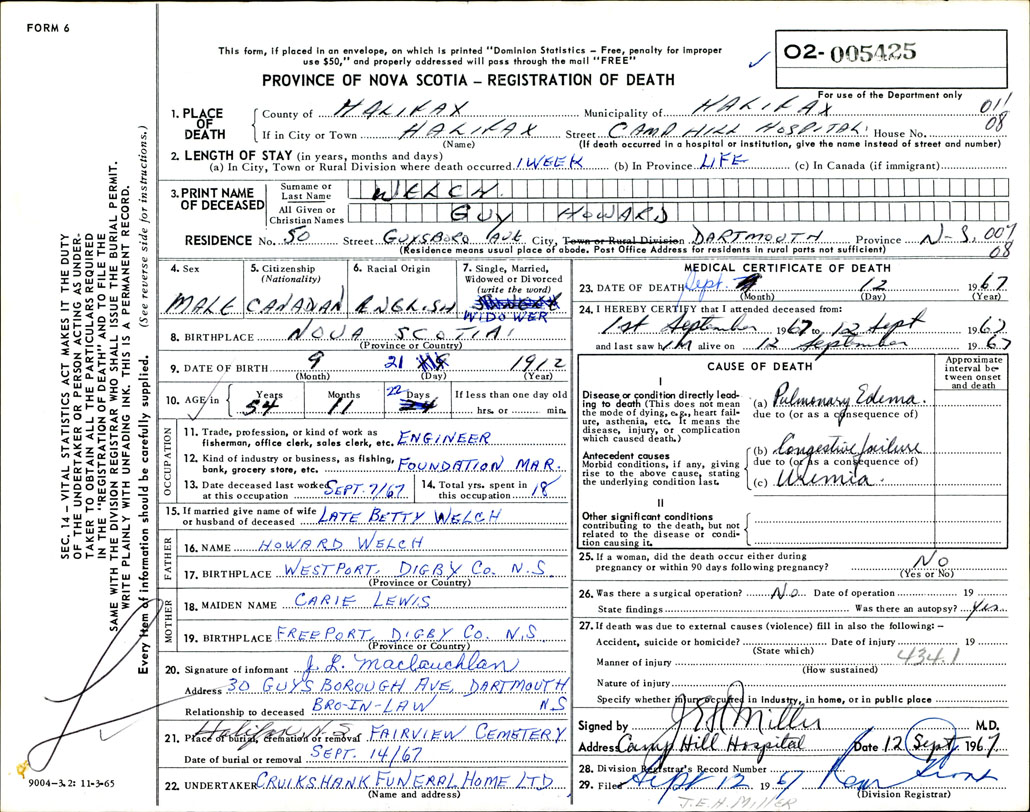 FORM 6
This form, if placed in an envelope, on which is printed "Dominion Statistics – Free, penalty for improper
use $50," and properly addressed will pass through the mail "FREE"
PROVINCE OF NOVA SCOTIA – REGISTRATION OF DEATH
02- 005425
For use of the Department only
1. PLACE OF DEATH
County of HALIFAX Municipality of HALIFAX 011
If in City or Town HALIFAX Street CAMP HILL HOSPITAL House No. 08
(Name) (If death occurred in a hospital or institution, give the name instead of street and number)
2. LENGTH OF STAY (in years, months and days)
(a) In City, Town or Rural Division where death occurred 1 WEEK (b) In Province LIFE (c) In Canada (if immigrant)
3. PRINT NAME OF DECEASED
Surname or Last Name WELCH
All Given or Christian Names GUY HOWARD
RESIDENCE No. 50 Street GUYSBORO AVE City, Town or Rural Division DARTMOUTH Province N-S. 007
(Residence means usual place of abode. Post Office Address for residents in rural parts not sufficient) 08
4. Sex MALE
5. Citizenship (Nationality) CANADAN
6. Racial Origin ENGLISH
7. Single, Married, Widowed or Divorced (write the word) WIDOWER
8. BIRTHPLACE NOVA SCOTIA
(Province or Country)
9. DATE OF BIRTH 9 21 1912
(Month) (Day) (Year)
10. AGE in Years 54 Months 11 Days 22 If less than one day old hrs. or min.
OCCUPATION
11. Trade, profession, or kind of work as
fisherman, office clerk, sales clerk, etc. ENGINEER
12. Kind of industry or business, as fishing,
bank, grocery store, etc. FOUNDATION MAR.
13. Date deceased last worked at this occupation SEPT. 7/67 14. Total yrs. spent in this occupation 18
15. If married give name of wife
or husband of deceased LATE BETTY WELCH
FATHER
16. NAME HOWARD WELCH
17. BIRTHPLACE WESTPORT, DIGBY CO. N.S.
(Province or Country)
MOTHER
18. MAIDEN NAME CARIE LEWIS
19. BIRTHPLACE FREEPORT, DIGBY CO. N.S
(Province or Country)
20. Signature of informant J. L. Maclauchlan
Address 30 GUYSBOROUGH AVE. DARTMOUTH
Relationship to deceased BRO-IN-LAW N S
21. Place of burial, cremation or removal Halifax N.S. FAIRVIEW CEMETERY
Date of burial or removal SEPT. 14/67
22. UNDERTAKER CRUIKSHANK FUNERAL HOME LTD
(Name and address)
MEDICAL CERTIFICATE OF DEATH
23. DATE OF DEATH Sept. 12 1967
(Month) (Day) (Year)
24. I HEREBY CERTIFY that I attended deceased from:
1st September 1967 to 12 Sept 1967
and last saw him alive on 12 September 1967
CAUSE OF DEATH
Approximate interval between onset and death
I
Disease or condition directly leading to death (This does not mean the mode of dying, e.g., heart failure, asthenia, etc. It means the disease, injury, or complication which caused death.)
(a) Pulmonary Edema.
due to (or as a consequence of)
Antecedent causes
Morbid conditions, if any, giving rise to the above cause, stating the underlying condition last.
(b) Congestive failure
due to (or as a consequence of)
(c) Uremia.
II
Other significant conditions
contributing to the death, but not related to the disease or condition causing it.
25. If a woman, did the death occur either during
pregnancy or within 90 days following pregnancy? No
(Yes or No)
26. Was there a surgical operation? No Date of operation 19
State findings Was there an autopsy? Yes
27. If death was due to external causes (violence) fill in also the following: –
Accident, suicide or homicide? Date of injury 19
(State which) 434.1
Manner of injury
(How sustained)
Nature of injury
Specify whether injury occurred in Industry, in home, or in public place
Signed by J E H Miller M.D.
Address Camp Hill Hospital Date 12 Sept 1967
28. Division Registrar's Record Number
29. Filed Sept 12 1967
(Division Registrar)
J.E.H. MILLER
SEC. 14 – VITAL STATISTICS ACT MAKES IT THE DUTY
OF THE UNDERTAKER OR PERSON ACTING AS UNDER-
TAKER TO OBTAIN ALL THE PARTICULARS REQUIRED
IN THE "REGISTRATION OF DEATH" AND TO FILE THE
SAME WITH THE DIVISION REGISTRAR WHO SHALL ISSUE THE BURIAL PERMIT.
WRITE PLAINLY WITH UNFADING INK. THIS IS A PERMANENT RECORD.
Every item of information should be carefully supplied. (See reverse side for instructions.)
9004–3.2: 11-3-65